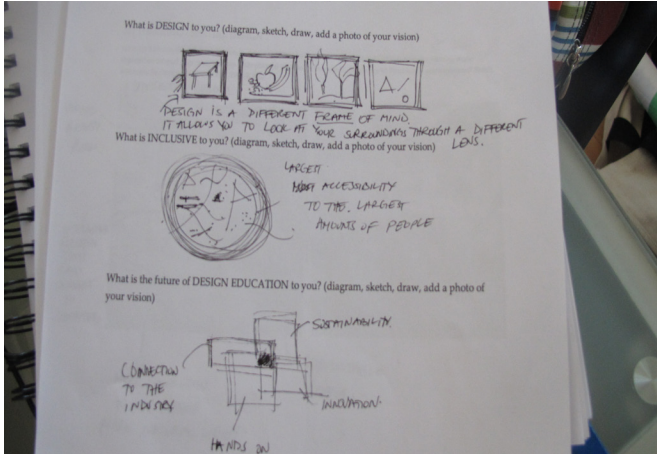 What is DESIGN to you? (diagram, sketch, draw, add a photo of your vision)
DESIGN IS A DIFFERENT FRAME OF MIND.
IT ALLOWS YOU TO LOOK AT YOUR SURROUNDINGS THROUGH A DIFFERENT
LENS.
What is INCLUSIVE to you? (diagram, sketch, draw, add a photo of your vision)
LARGEST
ACCESSIBILITY
TO THE LARGEST
AMOUNTS OF PEOPLE
What is the future of DESIGN EDUCATION to you? (diagram, sketch, draw, add a photo of
your vision)
SUSTAINABILITY.
CONNECTION
TO THE
INDUSTRY
INNOVATION.
HANDS ON